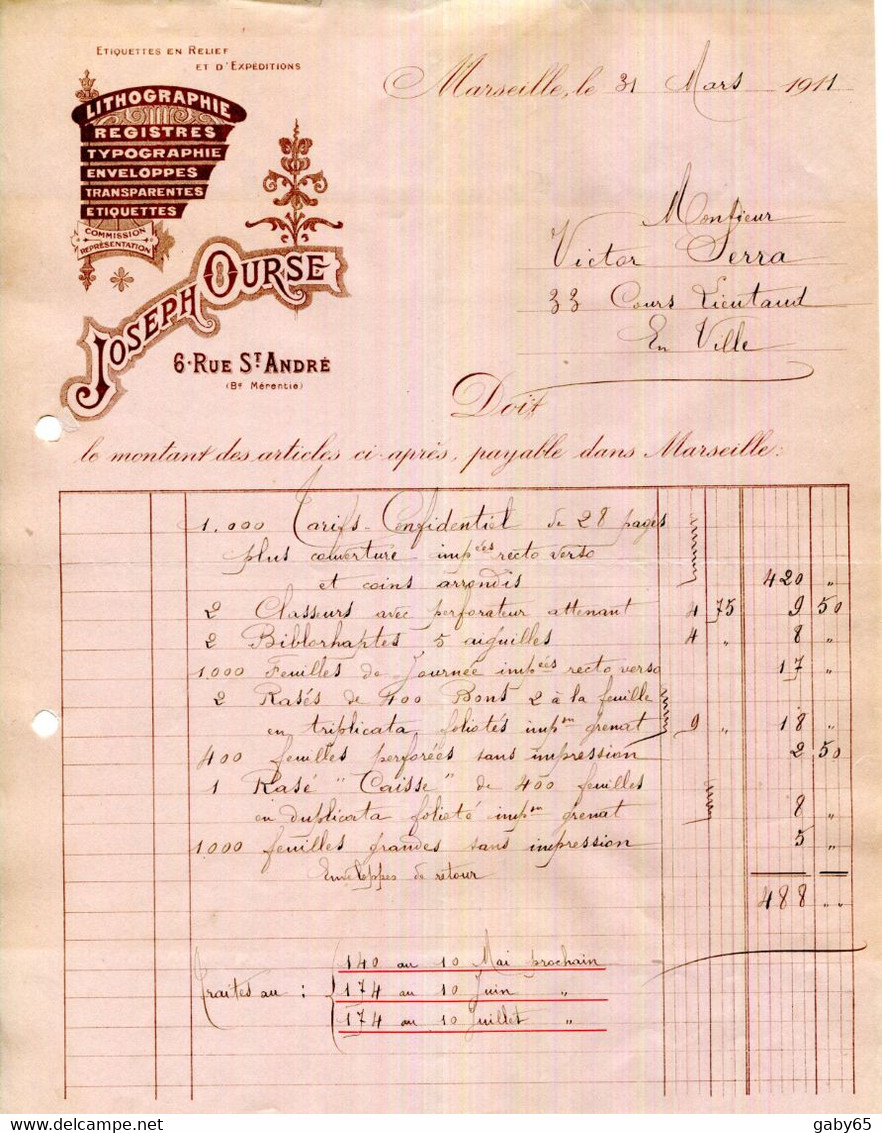 ETIQUETTES EN RELIEF
ET D'EXPÉDITIONS
LITHOGRAPHIE
REGISTRES
TYPOGRAPHIE
ENVELOPPES
TRANSPARENTES
ETIQUETTES
COMMISSION
REPRÉSENTATION
JOSEPH OURSE
6·RUE ST ANDRÉ
(Bd Mérentie)
Marseille, le 31 Mars 1911
Monsieur
Victor Serra
33 Cours Lieutaud
En Ville
Doit
le montant des articles ci-après, payable dans Marseille:
1.000 Tarifs-Confidentiel de 28 pages
plus couverture impées recto verso
et coins arrondis 420 "
2 Classeurs avec perforateur attenant 4 75 9 50
2 Biblorhaptes 5 aiguilles 4 " 8 "
1,000 Feuilles de Journée impées recto verso 17 "
2 Rasés de 400 Bons 2 à la feuille
en triplicata foliotés impon grenat 9 " 18 "
400 feuilles perforées sans impression 2 50
1 Rasé "Caisse" de 400 feuilles
en duplicata folioté impon grenat 8 "
1000 feuilles grandes sans impression 5 "
Enveloppes de retour
488 " "
Traites au :
140 au 10 Mai prochain
174 au 10 Juin "
174 au 10 Juillet "
www.delcampe.net
gaby65